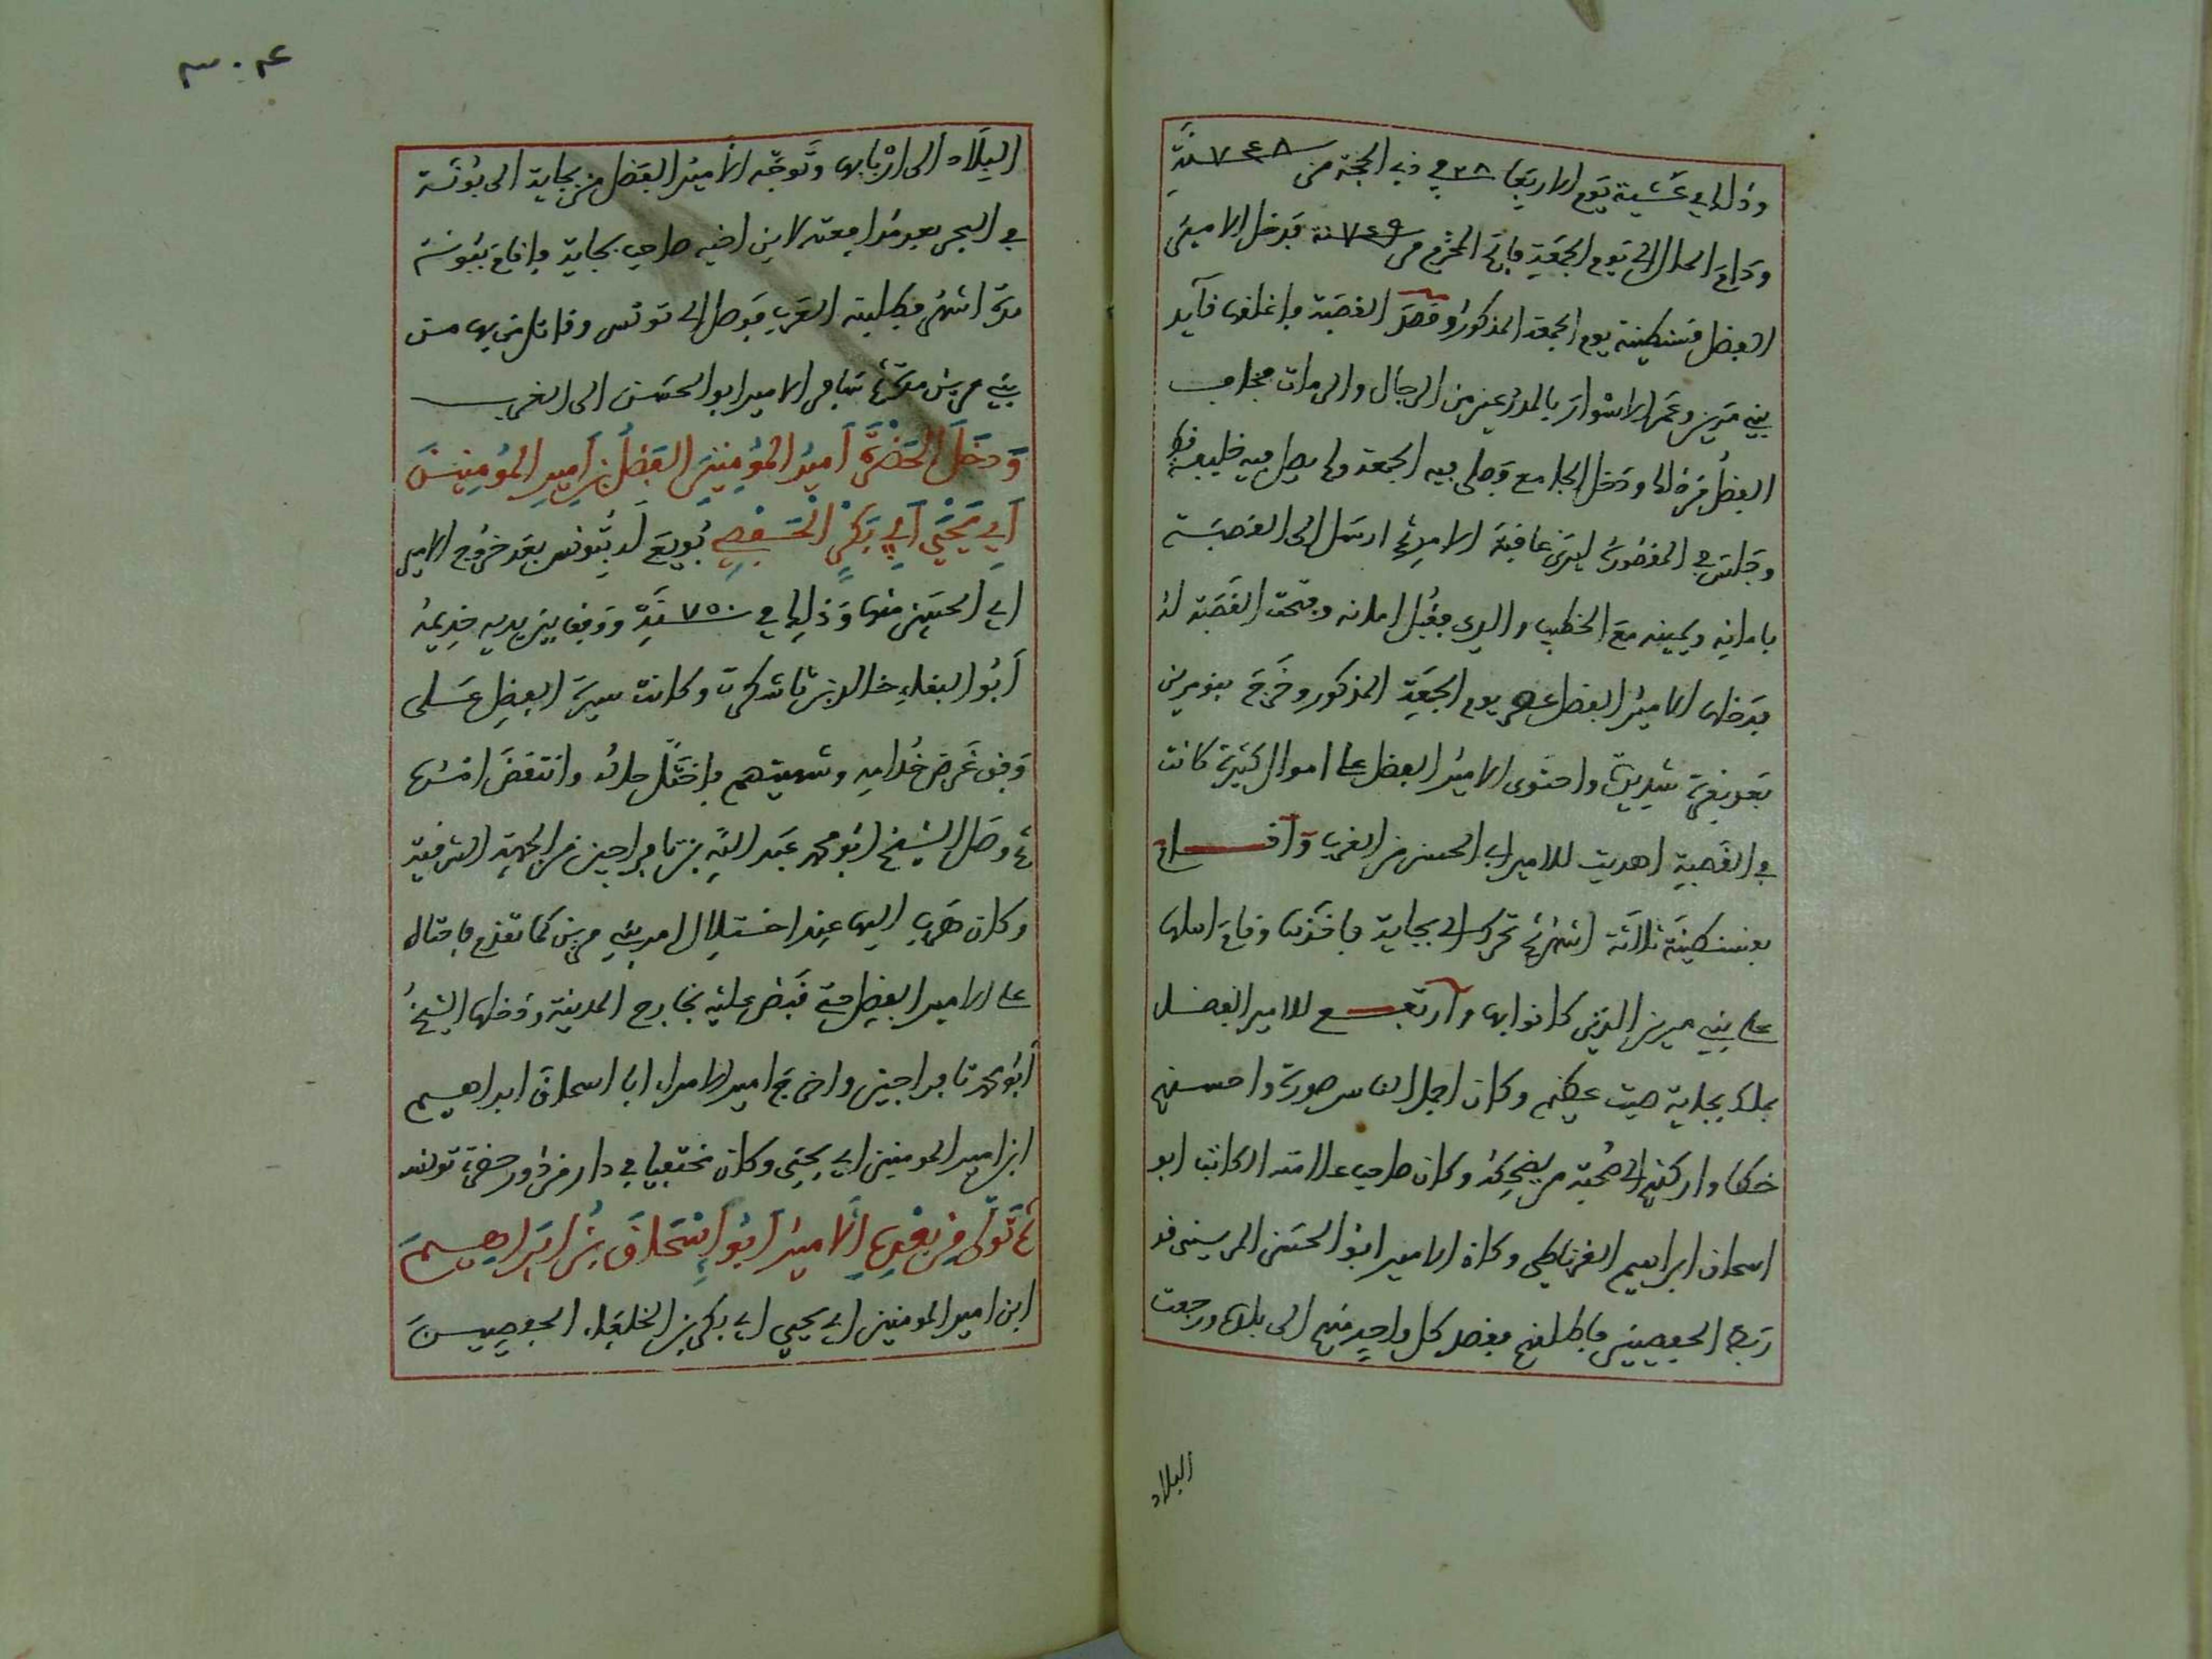 وذلك في عشية يوم الاربعا ٢٨ في ذي الحجة من سنة ٧٤٨
ودام الحال الى يوم الجمعة فاتح المحرم من سنة ٧٤٩ فدخل الامير
الفضل قسنطينة يوم الجمعة المذكور وقصد القصبة واغلقها قايد
بني مرين وعمر الاسوار بالمدرعين من الرجال والرمات فخاف
الفضل من ذلك ودخل الجامع وصلى فيه الجمعة ولم يصل فيه خليفة قط
وجلس في المقصورة ليرى عاقبة الامر ثم ارسل الى القصبة
بامانه ويمينه مع الخطيب والدي فقبل امانه وفتحت القصبة له
فدخلها الامير الفضل عصر يوم الجمعة المذكور وخرج بنو مرين
بعد شديدة واحتوى الامير الفضل على اموال كثيرة كانت
في القصبة اهديت للامير ابي الحسن من الغرب واقام
بقسنطينة ثلاثة اشهر ثم تحرك الى بجاية فاخذها وقام اهلها
على بني مرين الذين كانوا بها وارتفع للامير الفضل
بملك بجاية صيت عظيم وكان اجمل الناس صورة واحسنهم
خطا واركنهم الى صحبة من يضحكه وكان صاحب علامته الكاتب ابو
اسحاق ابراهيم الغرناطي وكان الامير ابو الحسن المريني قد
ربط الحفصيين فاطلقهم فقصد كل واحد منهم الى بلاده ورجعت
البلاد
٣٠٤
البلاد الى اربابها وتوجه الامير الفضل من بجاية الى بونة
في البحر بعد مدافعته لابن اخيه صاحب بجاية واقام ببونة
مدة اشهر فطلبته العرب فوصل الى تونس وقاتل من بها من
بني مرين مدة ثم سافر الامير ابو الحسن الى الغرب
ودخل الحضرة امير المؤمنين الفضل بن امير المؤمنين
ابي يحيى ابي بكر الحفصي بويع له بتونس بعد خروج الامير
ابي الحسن منها وذلك في سنة ٧٥٠ ووقف بين يديه خديمه
ابو البقاء خالد بن وكانت سيرة الفضل على
وفق غرض خدامه وشهيتهم فاختل حاله وانتقض امره
ثم وصل الشيخ ابو محمد عبد الله بن تافراجين من الجهة الشرقية
وكان هرب اليها عند اختلال امر بني مرين كما تقدم فاحتال
على الامير الفضل حتى قبض عليه بخارج المدينة ودخلها الشيخ
ابو محمد تافراجين واخرج امير الامراء ابا اسحاق ابراهيم
ابن امير المومنين ابي يحيى وكان مختفيا في دار من دور حضرة تونس
ثم تولى من بعده الامير ابو اسحاق بن ابراهيم
ابن امير المومنين ابي يحيى ابي بكر بن الخلفاء الحفصيين